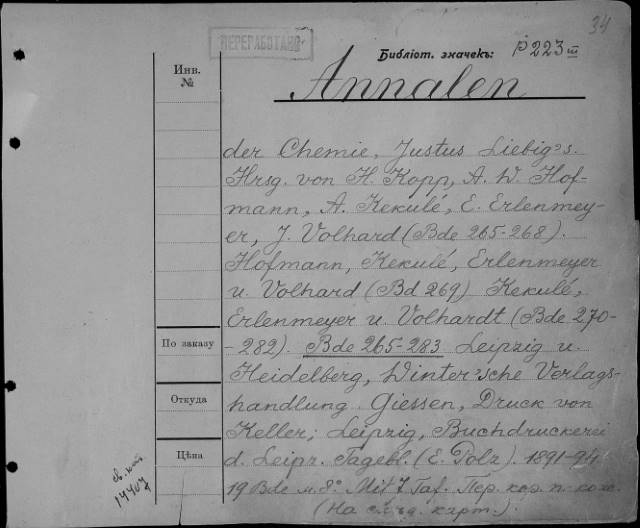 34
ПЕРЕРАБОТАНО
Библіот. значекъ: P 223 III
Инв.
№
Annalen
der Chemie, Justus Liebig's.
Hrsg. von H. Kopp, A. W. Hof-
mann, A. Kekulé, E. Erlenmey-
er, J. Volhard (Bde 265-268).
Hofmann, Kekulé, Erlenmeyer
u. Volhard (Bd 269) Kekulé,
Erlenmeyer u. Volhardt (Bde 270-
-282). Bde 265-283 Leipzig u.
Heidelberg, Winter'sche Verlags-
handlung. Giessen, Druck von
Keller; Leipzig, Buchdruckerei
d. Leipz. Tagebl. (E. Polz). 1891-94
19 Bde in 8º. Mit 7 Taf. Пер. кор. п. кож.
(На слѣд. карт.).
По заказу
Откуда
Цѣна